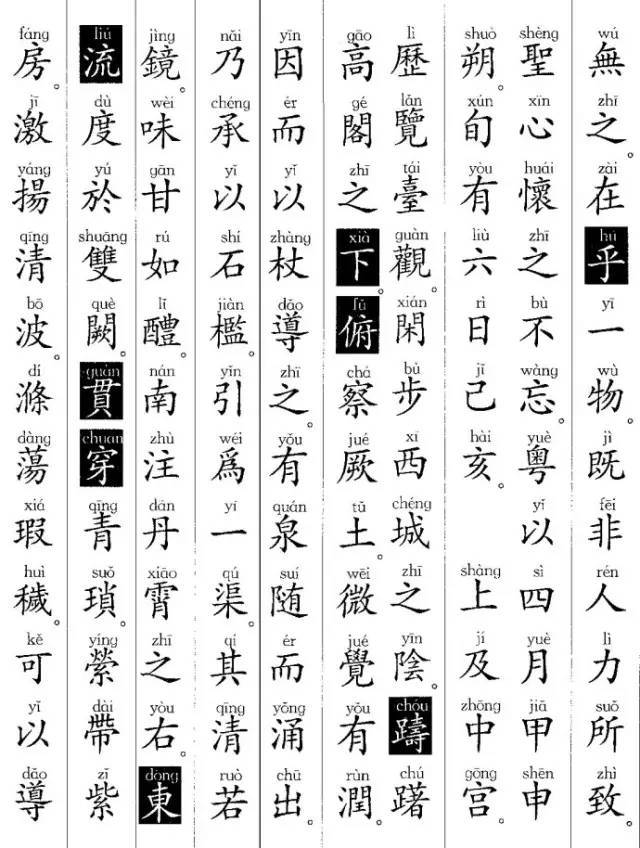 wú zhī zài hū yī wù jì fēi rén lì suǒ zhì
無之。在乎一物。既非人力所致。
shèng xīn huái zhī bù wàng yuè yǐ sì yuè jiǎ shēn
聖心懷之不忘。粵以四月甲申
shuò xún yòu liù rì jǐ hài shàng jí zhōng gōng
朔。旬有六日己亥。上及中宫
lì lǎn tái guàn xián bù xī chéng zhī yīn chóu chú
歷覽臺觀。閑步西城之陰。躊躇
gāo gé zhī xià fǔ chá jué tǔ wēi jué yǒu rùn
高閣之下。俯察厥土。微覺有潤。
yīn ér yǐ zhàng dǎo zhī yǒu quán suí ér yǒng chū
因而以杖導之。有泉随而涌出。
nǎi chéng yǐ shí jiàn yǐn wéi yī qú qí qīng ruò
乃承以石檻。引爲一渠。其清若
jìng wèi gān rú lǐ nán zhù dān xiāo zhī yòu dōng
鏡。味甘如醴。南注丹霄之右。東
liú dù yú shuāng què guàn chuān qīng suǒ yíng dài zǐ
流度於雙闕。貫穿青瑣。縈帶紫
fáng jī yáng qīng bō dí dàng xiá huì kě yǐ dǎo
房。激揚清波。滌蕩瑕穢。可以導